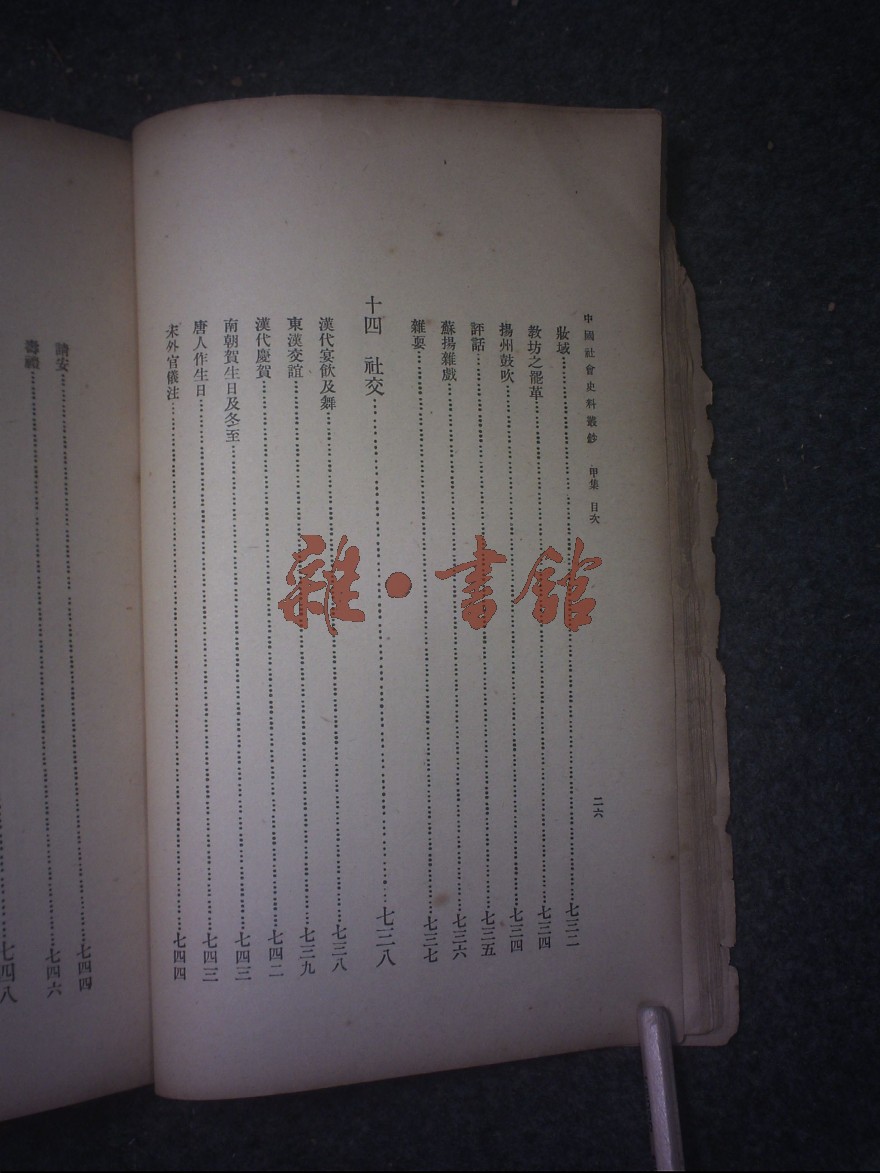 中國社會史料叢鈔 甲集 目次
二六
妝域 七三二
教坊之罷革 七三四
揚州鼓吹 七三四
評話 七三五
蘇揚雜戲 七三六
雜耍 七三七
十四 社交 七三八
漢代宴飲及舞 七三八
東漢交誼 七三九
漢代慶賀 七四二
南朝賀生日及冬至 七四三
唐人作生日 七四三
宋外官儀注 七四四
請安 七四四
七四六
七四八
雜·書館